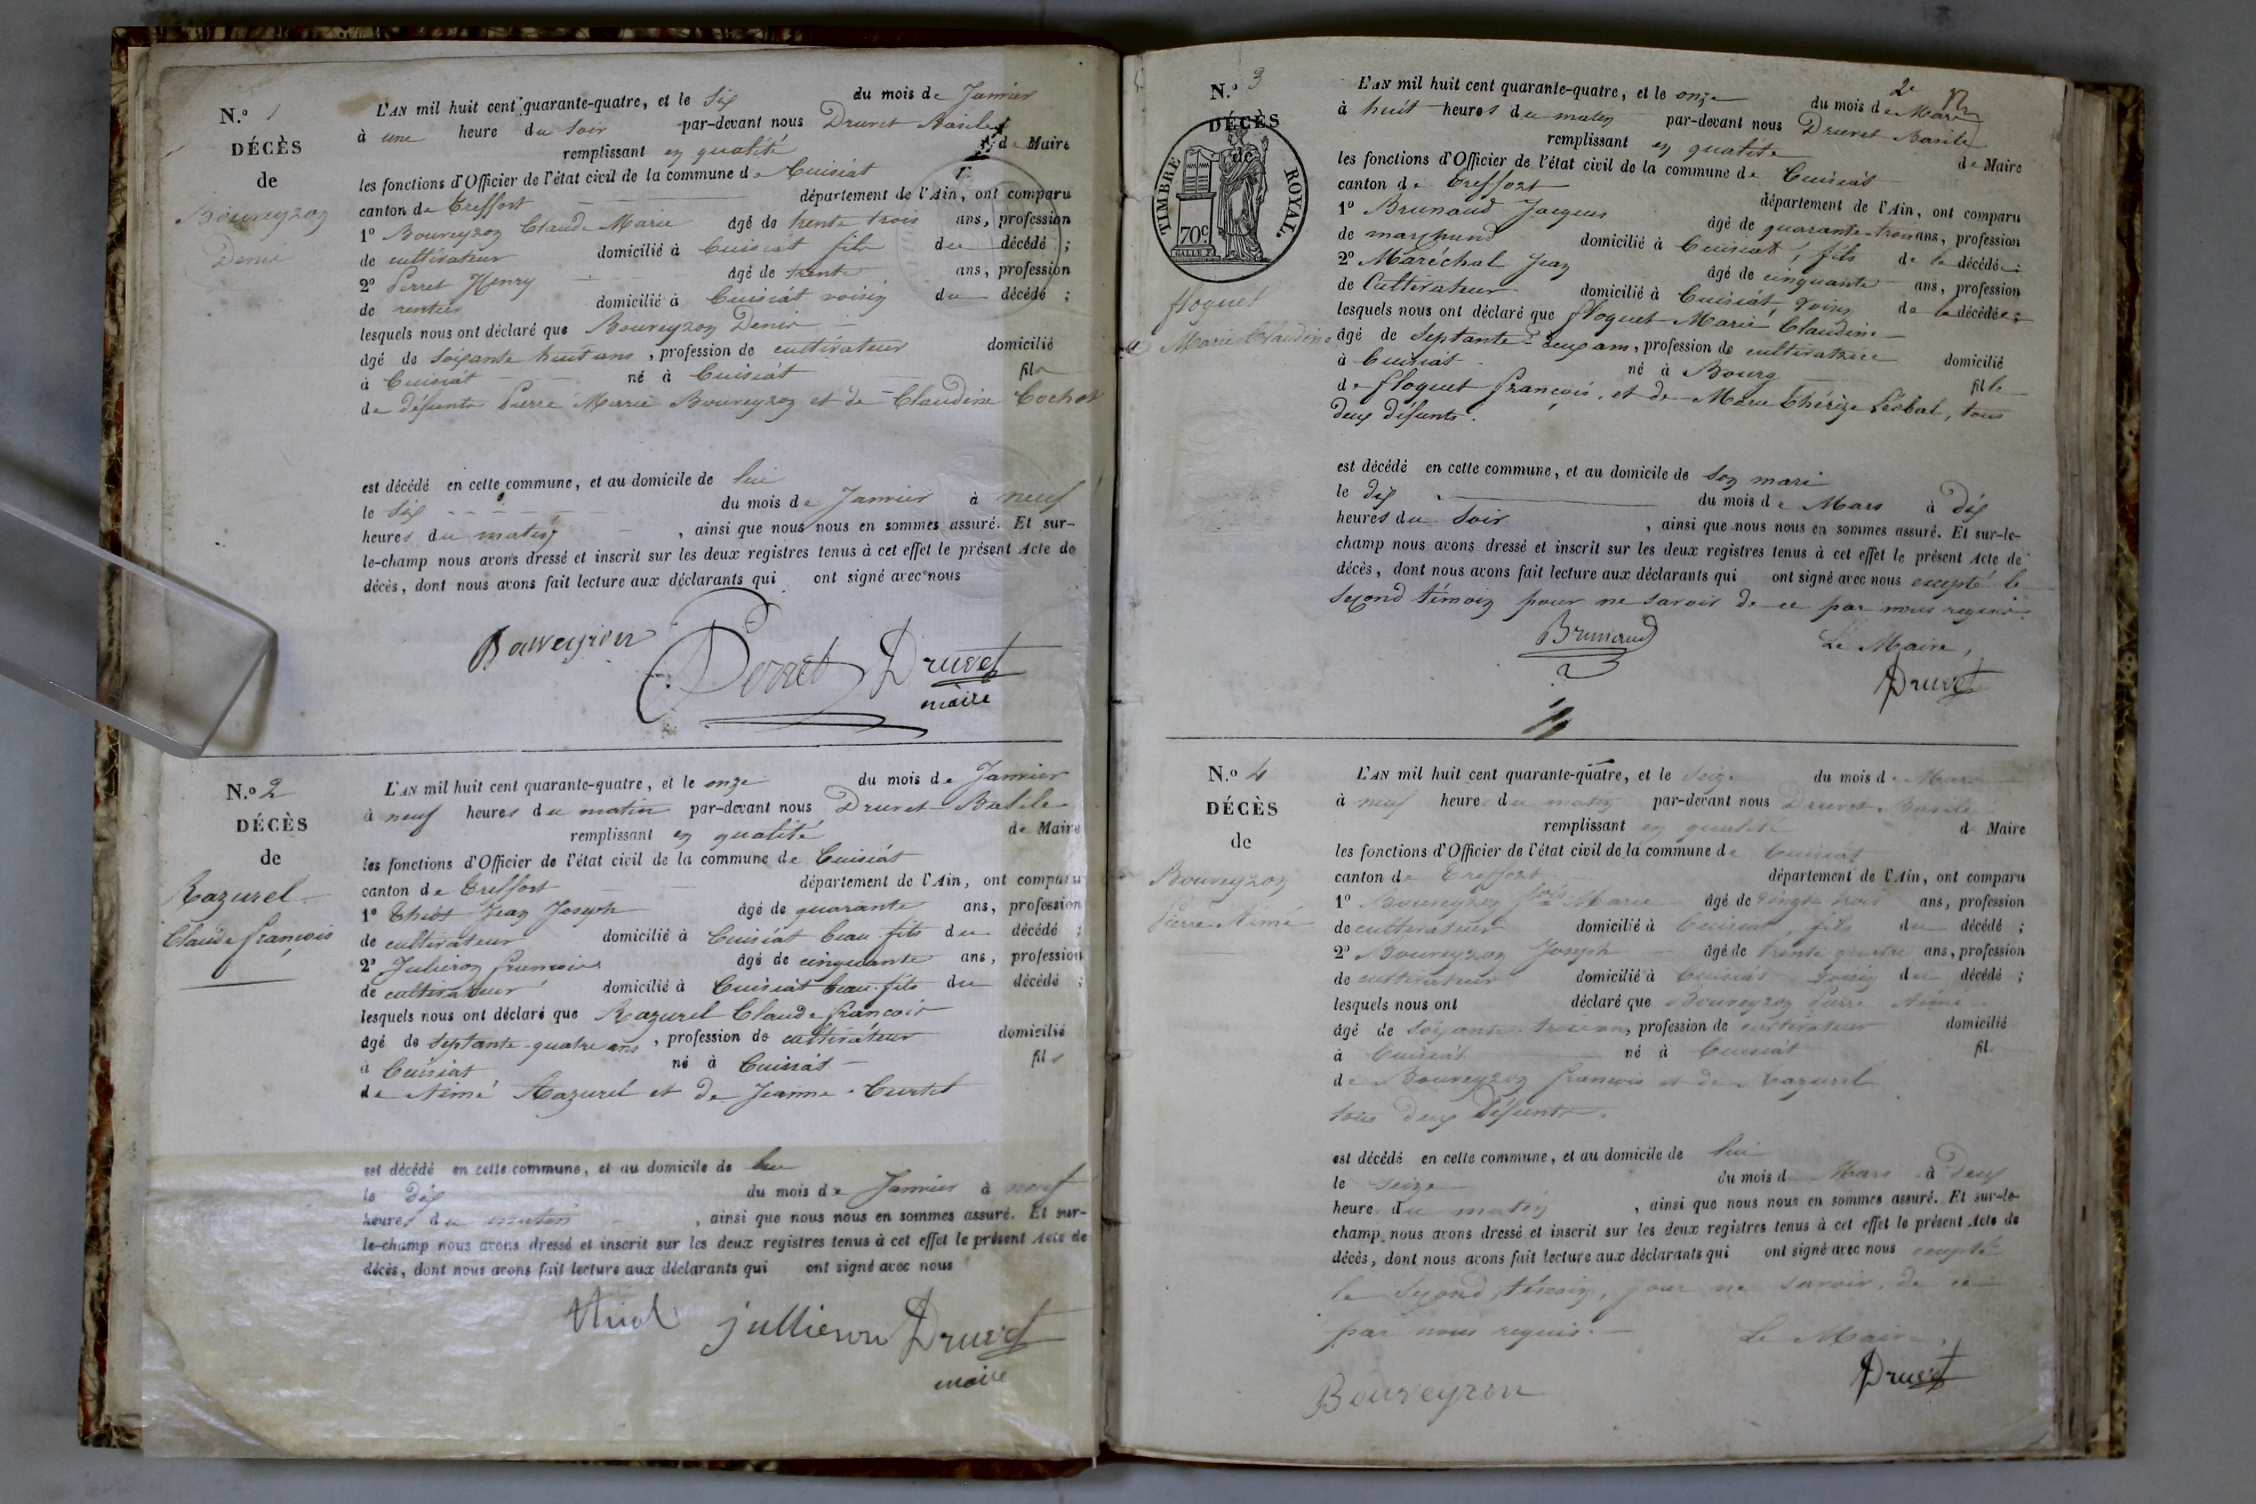 N.o 1
DÉCÈS
de
Bouveyron
Denis
L'AN mil huit cent quarante-quatre, et le six du mois de Janvier
à une heure du soir par-devant nous Druvet Basile
remplissant en qualité de Maire
les fonctions d'Officier de l'état civil de la commune de Cuisiat
canton de Treffort département de l'Ain, ont comparu
1o Bouveyron Claude Marie âgé de trente trois ans, profession
de cultivateur domicilié à Cuisiat fils du décédé ;
2o Perret Henry âgé de trente ans, profession
de rentier domicilié à Cuisiat voisin du décédé ;
lesquels nous ont déclaré que Bouveyron Denis
âgé de soixante huit ans, profession de cultivateur domicilié
à Cuisiat né à Cuisiat fils
de défunts Pierre Marie Bouveyron et de Claudine Cochet
est décédé en cette commune, et au domicile de lui
le six du mois de Janvier à neuf
heures du matin, ainsi que nous nous en sommes assuré. Et sur-
le-champ nous avons dressé et inscrit sur les deux registres tenus à cet effet le présent Acte de
décès, dont nous avons fait lecture aux déclarants qui ont signé avec nous
Bouveyron Perret Druvet
maire
N.o 2
DÉCÈS
de
Razurel
Claude françois
L'AN mil huit cent quarante-quatre, et le onze du mois de Janvier
à neuf heures du matin par-devant nous Druvet Basile
remplissant en qualité de Maire
les fonctions d'Officier de l'état civil de la commune de Cuisiat
canton de Treffort département de l'Ain, ont comparu
1o Jean Joseph âgé de quarante ans, profession
de cultivateur domicilié à Cuisiat beau-fils du décédé ;
2o françois âgé de cinquante ans, profession
de cultivateur domicilié à Cuisiat beau-fils du décédé ;
lesquels nous ont déclaré que Razurel Claude françois
âgé de septante-quatre ans, profession de cultivateur domicilié
à Cuisiat né à Cuisiat fils
de Aimé Razurel et de Jeanne Curtet
est décédé en cette commune, et au domicile de lui
le dix du mois de Janvier à neuf
heures du matin, ainsi que nous nous en sommes assuré. Et sur-
le-champ nous avons dressé et inscrit sur les deux registres tenus à cet effet le présent Acte de
décès, dont nous avons fait lecture aux déclarants qui ont signé avec nous
jullieron Druvet
maire
2e
N.o 3
DÉCÈS
de
TIMBRE ROYAL.
70c.
floquet
Marie Claudine
L'AN mil huit cent quarante-quatre, et le onze du mois de Mars
à huit heures du matin par-devant nous Druvet Basile
remplissant en qualité de Maire
les fonctions d'Officier de l'état civil de la commune de Cuisiat
canton de Treffort département de l'Ain, ont comparu
1o Brunaud Jacques âgé de quarante-trois ans, profession
de marchand domicilié à Cuisiat, fils de la décédée ;
2o Maréchal Jean âgé de cinquante ans, profession
de Cultivateur domicilié à Cuisiat, voisin de la décédée ;
lesquels nous ont déclaré que floquet Marie Claudine
âgé de septante-deux ans, profession de cultivatrice domicilié
à Cuisiat né à Bourg fille
de floquet françois, et de Marie Thérèze, tous
deux défunts.
est décédé en cette commune, et au domicile de son mari
le dix du mois de Mars à dix
heures du soir, ainsi que nous nous en sommes assuré. Et sur-le-
champ nous avons dressé et inscrit sur les deux registres tenus à cet effet le présent Acte de
décès, dont nous avons fait lecture aux déclarants qui ont signé avec nous excepté le
second témoin pour ne savoir de ce par nous requis.
Brunaud Le Maire,
Druvet
N.o 4
DÉCÈS
de
Bouveyron
Pierre Aimé
L'AN mil huit cent quarante-quatre, et le seize du mois de Mars
à neuf heures du matin par-devant nous Druvet Basile
remplissant en qualité de Maire
les fonctions d'Officier de l'état civil de la commune de Cuisiat
canton de Treffort département de l'Ain, ont comparu
1o Bouveyron Marie âgé de vingt trois ans, profession
de cultivateur domicilié à Cuisiat, fils du décédé ;
2o Bouveyron Joseph âgé de trente quatre ans, profession
de cultivateur domicilié à Cuisiat voisin du décédé ;
lesquels nous ont déclaré que Bouveyron Pierre Aimé
âgé de soixante trois ans, profession de cultivateur domicilié
à Cuisiat né à Cuisiat fils
de Bouveyron françois et de Razurel
tous deux défunts.
est décédé en cette commune, et au domicile de lui
le seize du mois de Mars à deux
heures du matin, ainsi que nous nous en sommes assuré. Et sur-le-
champ nous avons dressé et inscrit sur les deux registres tenus à cet effet le présent Acte de
décès, dont nous avons fait lecture aux déclarants qui ont signé avec nous excepté
le second témoin, pour ne savoir, de ce
par nous requis. Le Maire,
Bouveyron Druvet